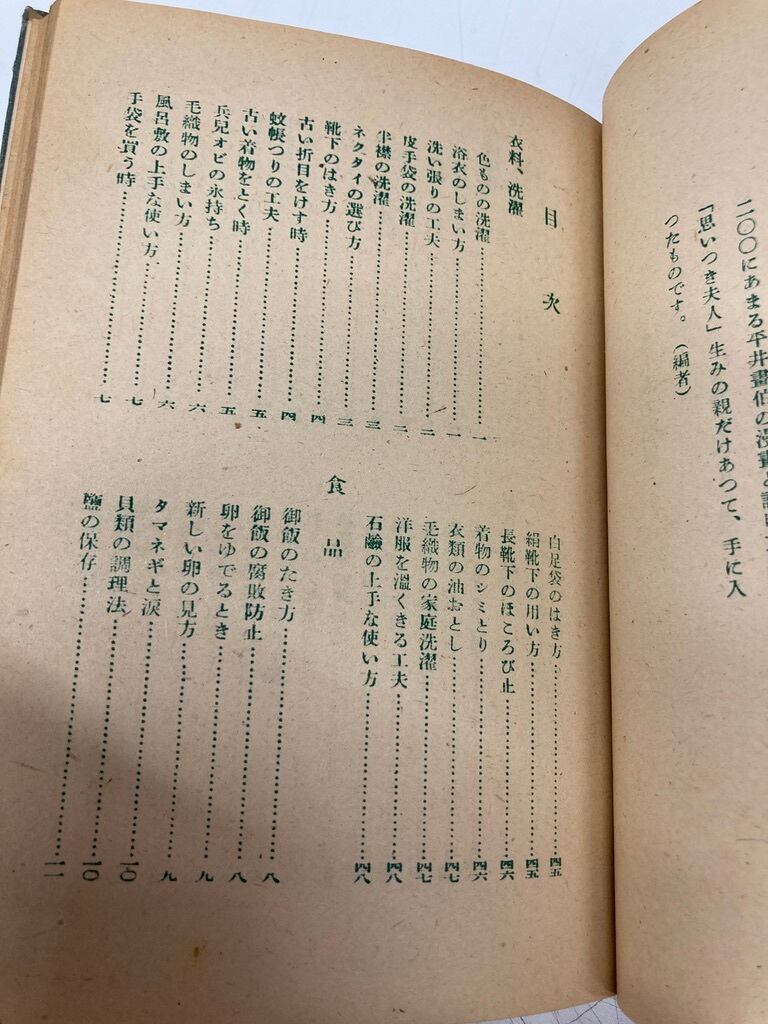 二〇〇にあまる平井畫伯の漫畫と
「思いつき夫人」生みの親だけあつて、手に入
つたものです。（編者）
目次
衣料、洗濯
色ものの洗濯……一
浴衣のしまい方……一
洗い張りの工夫……二
皮手袋の洗濯……二
半襟の洗濯……三
ネクタイの選び方……三
靴下のはき方……四
古い折目をけす時……四
蚊帳つりの工夫……五
古い着物をとく時……五
兵兒オビの永持ち……六
毛織物のしまい方……六
風呂敷の上手な使い方……七
手袋を買う時……七
白足袋のはき方……四五
絹靴下の用い方……四五
長靴下のほころび止……四六
着物のシミとり……四六
衣類の油おとし……四七
毛織物の家庭洗濯……四七
洋服を溫くきる工夫……四八
石鹼の上手な使い方……四八
食品
御飯のたき方……八
御飯の腐敗防止……八
卵をゆでるとき……九
新しい卵の見方……九
タマネギと涙……一〇
貝類の調理法……一〇
鹽の保存……一一